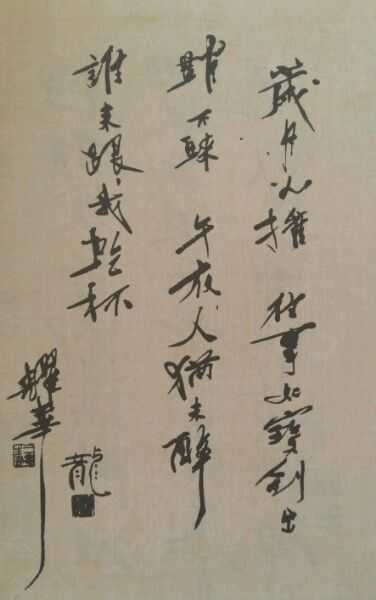 歲月 往事如寶劍出
鞘 午夜人猶未醉
誰來跟我乾杯
龍
耀華